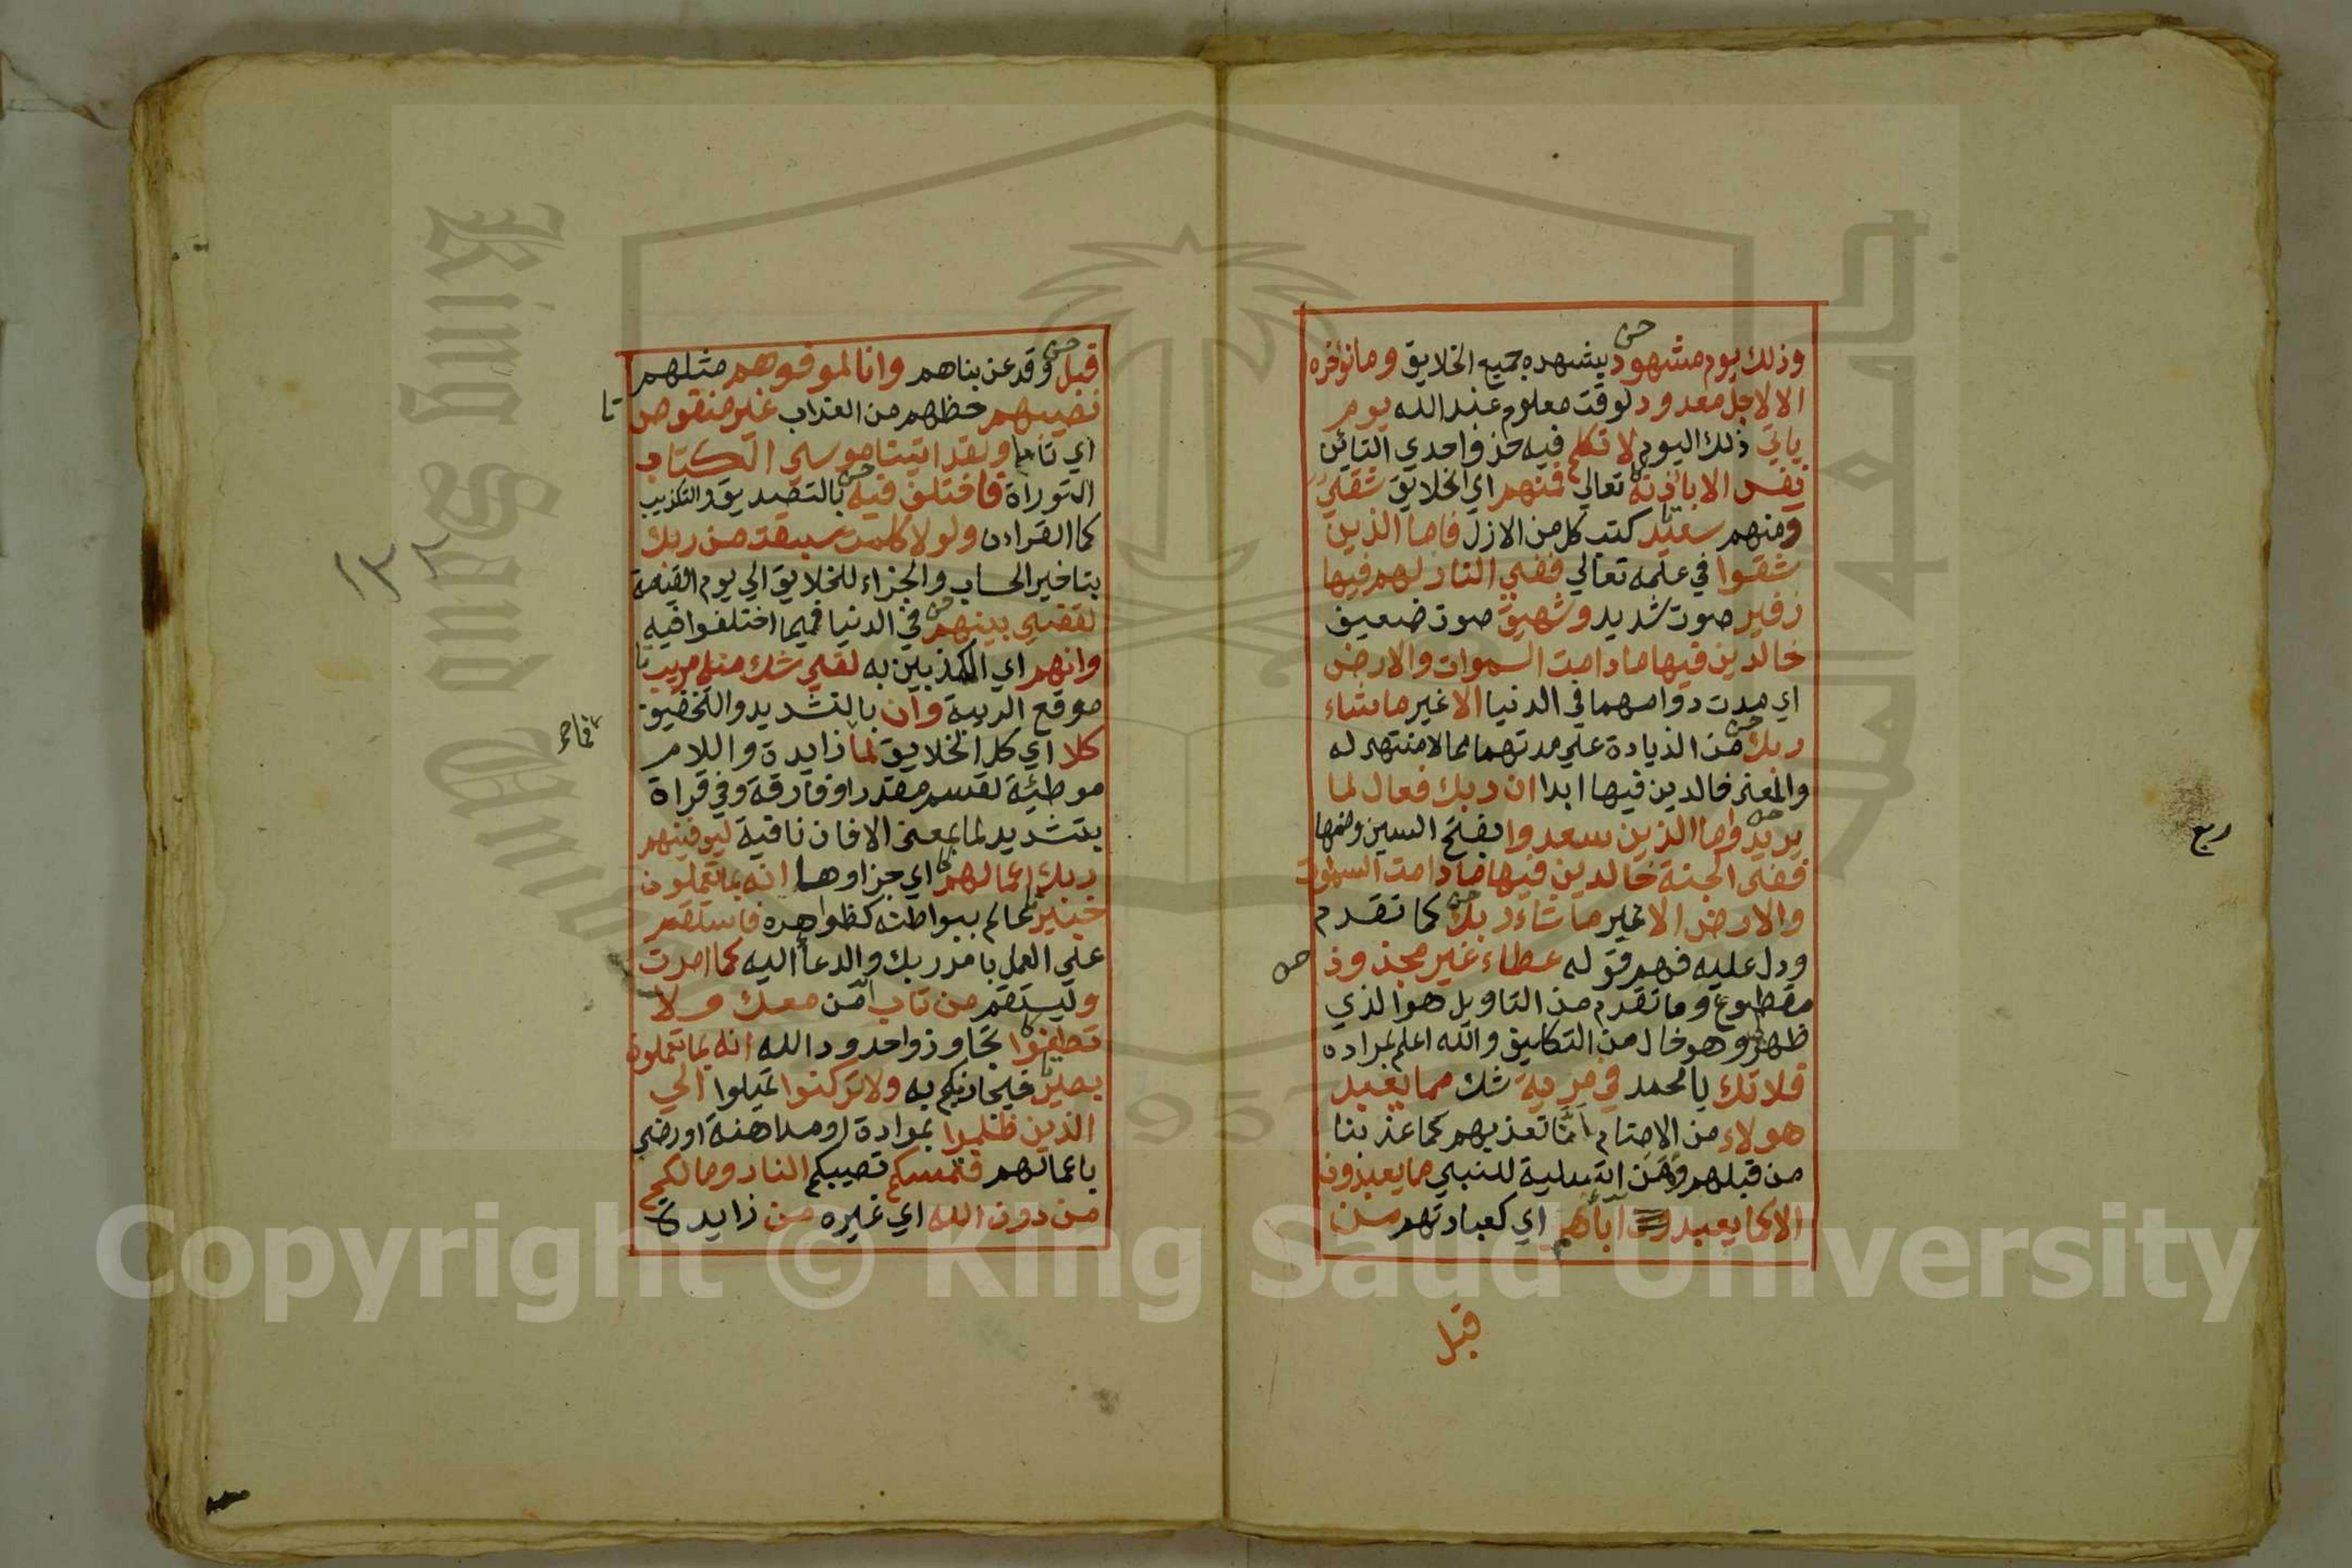 وذلك يوم مشهود يشهده جميع الخلايق وما نوخره
الا لاجل معدود لوقت معلوم عند الله يوم
ياتي ذلك اليوم لا تكلم فيه حذف احدي التائن
نفس الا باذنه تعالي فمنهم اي الخلايق شقي
ومنهم سعيد كتب كل من الازل فاما الذين
شقوا في علمه تعالي ففي النار لهم فيها
زفير صوت شديد وشهيق صوت ضعيف
خالدين فيها ما دامت السموات والارض
اي مدت دوامهما في الدنيا الا غير ما شاء
ربك من الزيادة علي مدتهما مما لا منتهى له
والمعنى خالدين فيها ابدا ان ربك فعال لما
يريد واما الذين سعدوا بفتح السين وضمها
ففي الجنة خالدين فيها ما دامت السموات
والارض الا غير ما شاء ربك كما تقدم
ودل عليه فهم قوله عطاء غير مجذوذ
مقطوع وما تقدم من التاويل هو الذي
ظهر وهو خال من التكليف والله اعلم بمراده
فلا تك يا محمد في مرية شك مما يعبد
هولاء من الاصنام انا نعذبهم كما عذبنا
من قبلهم وهذا تسلية للنبي ما يعبدون
الا كما يعبد اباؤهم اي كعبادتهم من
قبل
ربع
قبل وقد عذبناهم وانا لموفوهم مثلهم
نصيبهم حظهم من العذاب غير منقوص
اي تاما ولقد اتينا موسي الكتاب
التوراة فاختلف فيه بالتصديق والتكذيب
كالقران ولولا كلمت سبقت من ربك
بتاخير الحساب والجزاء للخلايق الي يوم القيمة
لقضي بينهم في الدنيا فيما اختلفوا فيه
وانهم اي المكذبين به لفي شك منه مريب
موقع الريبة وان بالتشديد والتخفيف
كلا اي كل الخلايق لما زايدة واللام
موطئة لقسم مقدر او فارقة وفي قراة
بتشديد لما بمعنى الا فان نافية ليوفينهم
ربك اعمالهم اي جزاوها انه بما يعملون
خبير عالم ببواطنه كظواهره فاستقم
علي العمل بامر ربك والدعا اليه كما امرت
وليستقم من تاب امن معك ولا
تطغوا تجاوزوا حدود الله انه بما تعملون
بصير فيجازيكم به ولا تركنوا تميلوا الي
الذين ظلموا بموادة او مداهنة او رضي
باعمالهم فتمسكم تصيبكم النار وما لكم
من دون الله اي غيره من زايدة
King Saud University
1957
Copyright © King Saud University